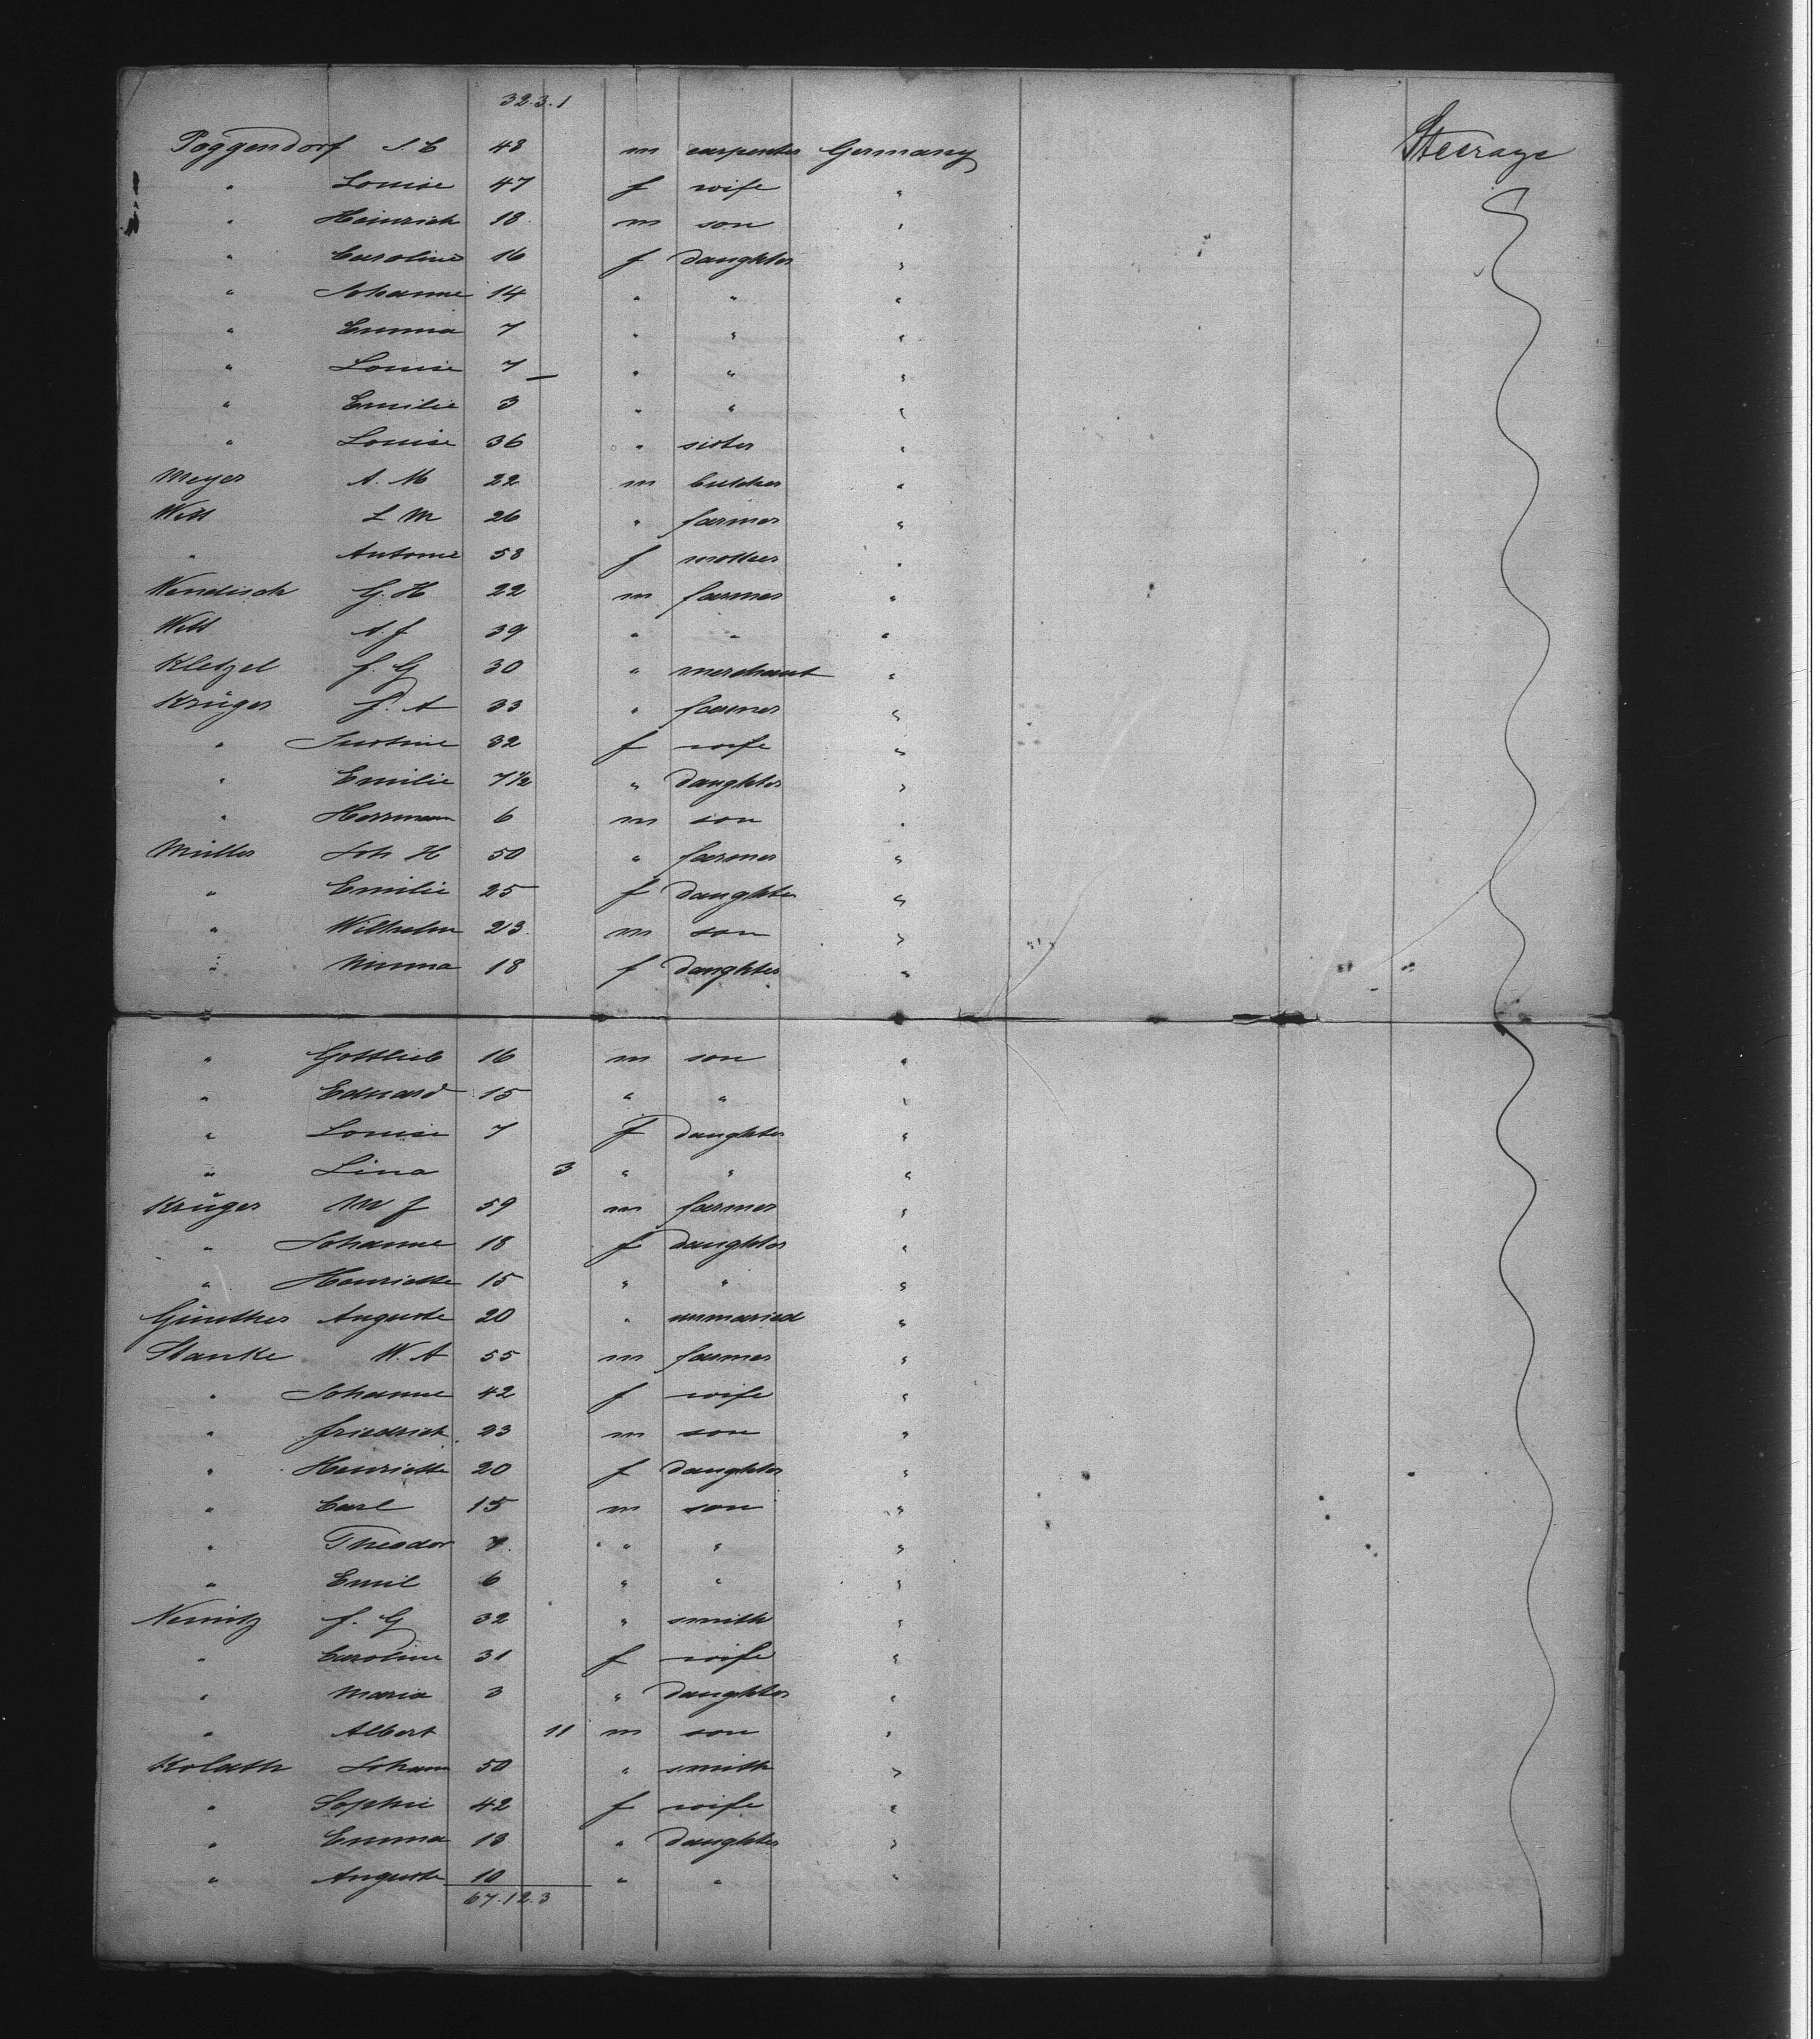 32.3.1
Poggendorf J. C 48 m carpenter Germany Steerage
" Louise 47 f wife "
" Heinrich 18 m son "
" Caroline 16 f daughter "
" Johanne 14 " " "
" Emma 7 " " "
" Louise 7 " " "
" Emilie 3 " " "
" Louise 36 " sister "
Meyer A. M 22 m butcher "
Witt L M 26 " farmer "
" Antonie 58 f mother "
Wendisch G. H 22 m farmer "
Witt A. J 39 " " "
Kletzel J. G 30 " merchant "
Krüger J. A 33 " farmer "
" Justine 32 f wife "
" Emilie 7 1/2 " daughter "
" Herrmann 6 m son "
Müller Joh H 50 " farmer "
" Emilie 25 f daughter "
" Wilhelm 23 m son "
" Minna 18 f daughter "
" Gottlieb 16 m son "
" Eduard 15 " " "
" Louise 7 f daughter "
" Lina 3 " " "
Krüger M J 59 m farmer "
" Johanne 18 f daughter "
" Henriette 15 " " "
Günther Auguste 20 " unmaried "
Stanke W. A 55 m farmer "
" Johanne 42 f wife "
" Friedrich 23 m son "
" Henriette 20 f daughter "
" Carl 15 m son "
" Theodor 7 " " "
" Emil 6 " " "
Nemitz J. G 32 " smith "
" Caroline 31 f wife "
" Maria 3 " daughter "
" Albert 11 m son "
Kolath Johann 50 " smith "
" Sophie 42 f wife "
" Emma 13 " daughter "
" Auguste 10 " " "
67.12.3